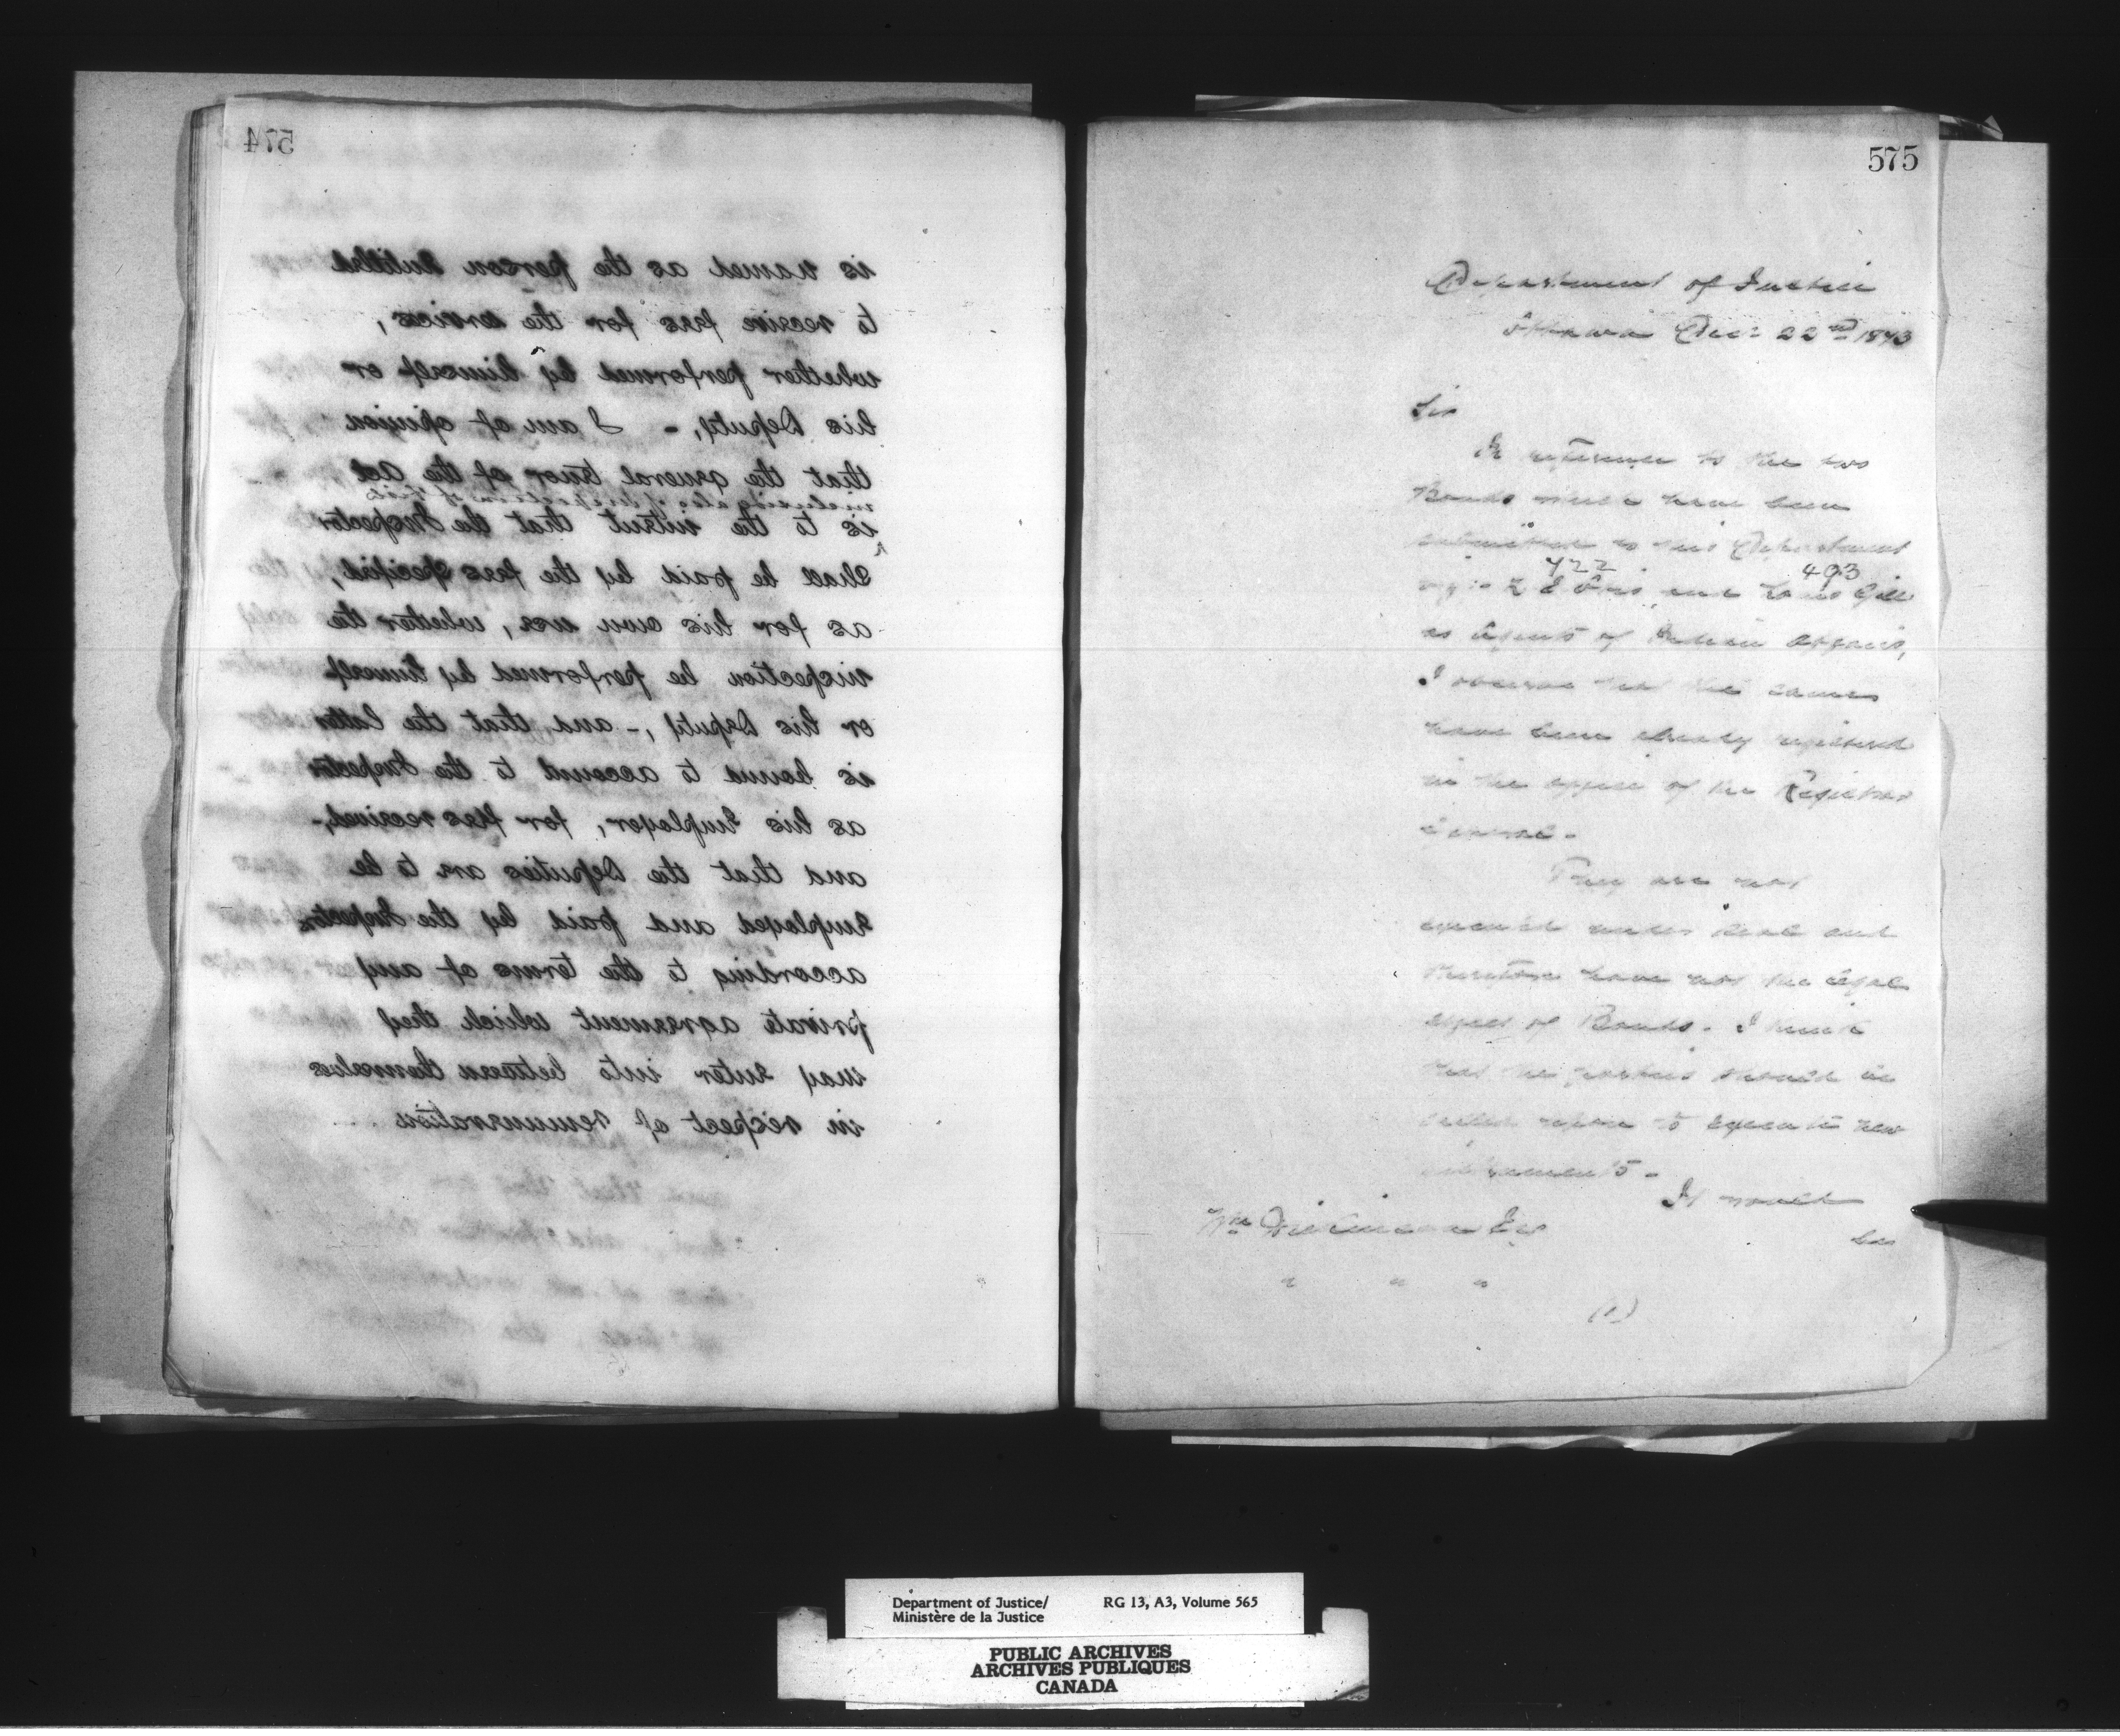 574
is named as the person entitled
to receive fees for the services,
whether performed by himself or
his Deputy, - I am of opinion
that the general tenor of the Act
including also of inspection of
is to the intent that the Inspector
shall be paid by the fees specified,
as for his own use, whether the
inspection be performed by himself
or his Deputy, - and that the latter
is bound to account to the Inspector
as his Employer, for fees received,-
and that the Deputies are to be
Employed and paid by the Inspector
according to the terms of any
private agreement which they
may enter into between themselves
in respect of remuneration
575
Department of Justice
Ottawa Decr 22nd 1873
Sir
In reference to the two
Bonds which have been
submitted to this Department
422 493
L E Otis and Louis Gill
as Agents of Indian Affairs,
I observe that the same
have been already registered
in the office of the Registrar
General -
They are not
executed under seal and
therefore have not the legal
effect of Bonds. I think
that the parties should be
called upon to execute new
instruments -
It would
be
Wm Dickinson Esq
" " "
(1)
Department of Justice/
Ministère de la Justice
RG 13, A3, Volume 565
PUBLIC ARCHIVES
ARCHIVES PUBLIQUES
CANADA